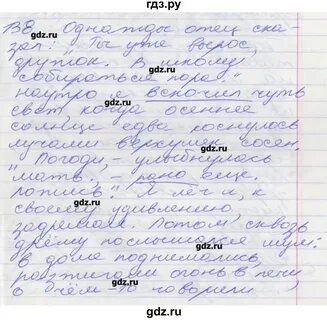 138 Однажды отец ска-
зал: "Ты уже вырос,
дружок. В школу
собираться пора"
наутро я вскочил чуть
свет, когда осеннее
солнце едва коснулось
лучами верхушек сосен.
"Погоди, - улыбнулась
мать. - рано еще.
ложись" Я лёг и, к
своему удивлению,
задремал. Потом, сквозь
дрёму послышался шум:
в доме поднимались,
разжигали огонь в печи
о чём-то говорили
gdz.ru
gdz.ru
gdz.ru
gdz.ru
gdz.ru
gdz.ru
gdz.ru
gdz.ru
gdz.ru
gdz.ru